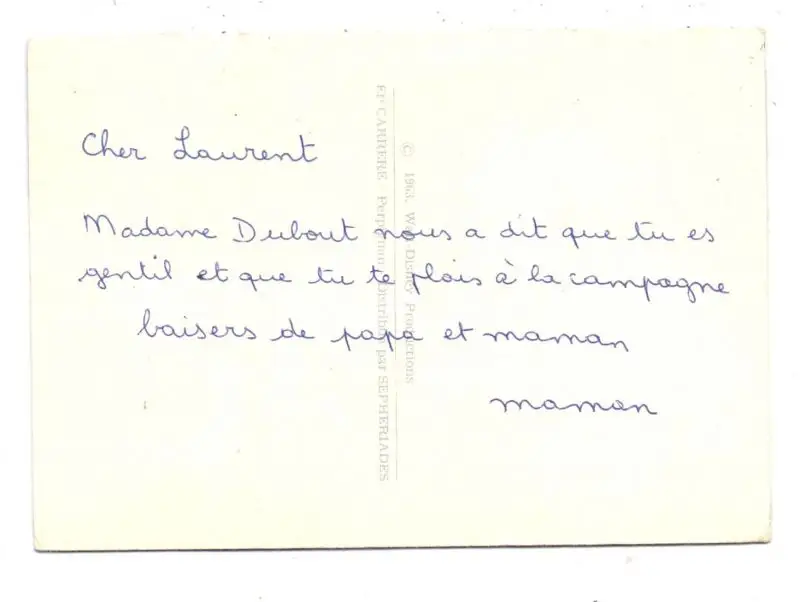 Cher Laurent
Madame Dubout nous a dit que tu es
gentil et que tu te plais à la campagne
baisers de papa et maman
maman
Ets CARRERE Perpignan Distribué par SEPHERIADES
© 1963, Walt-Disney Productions